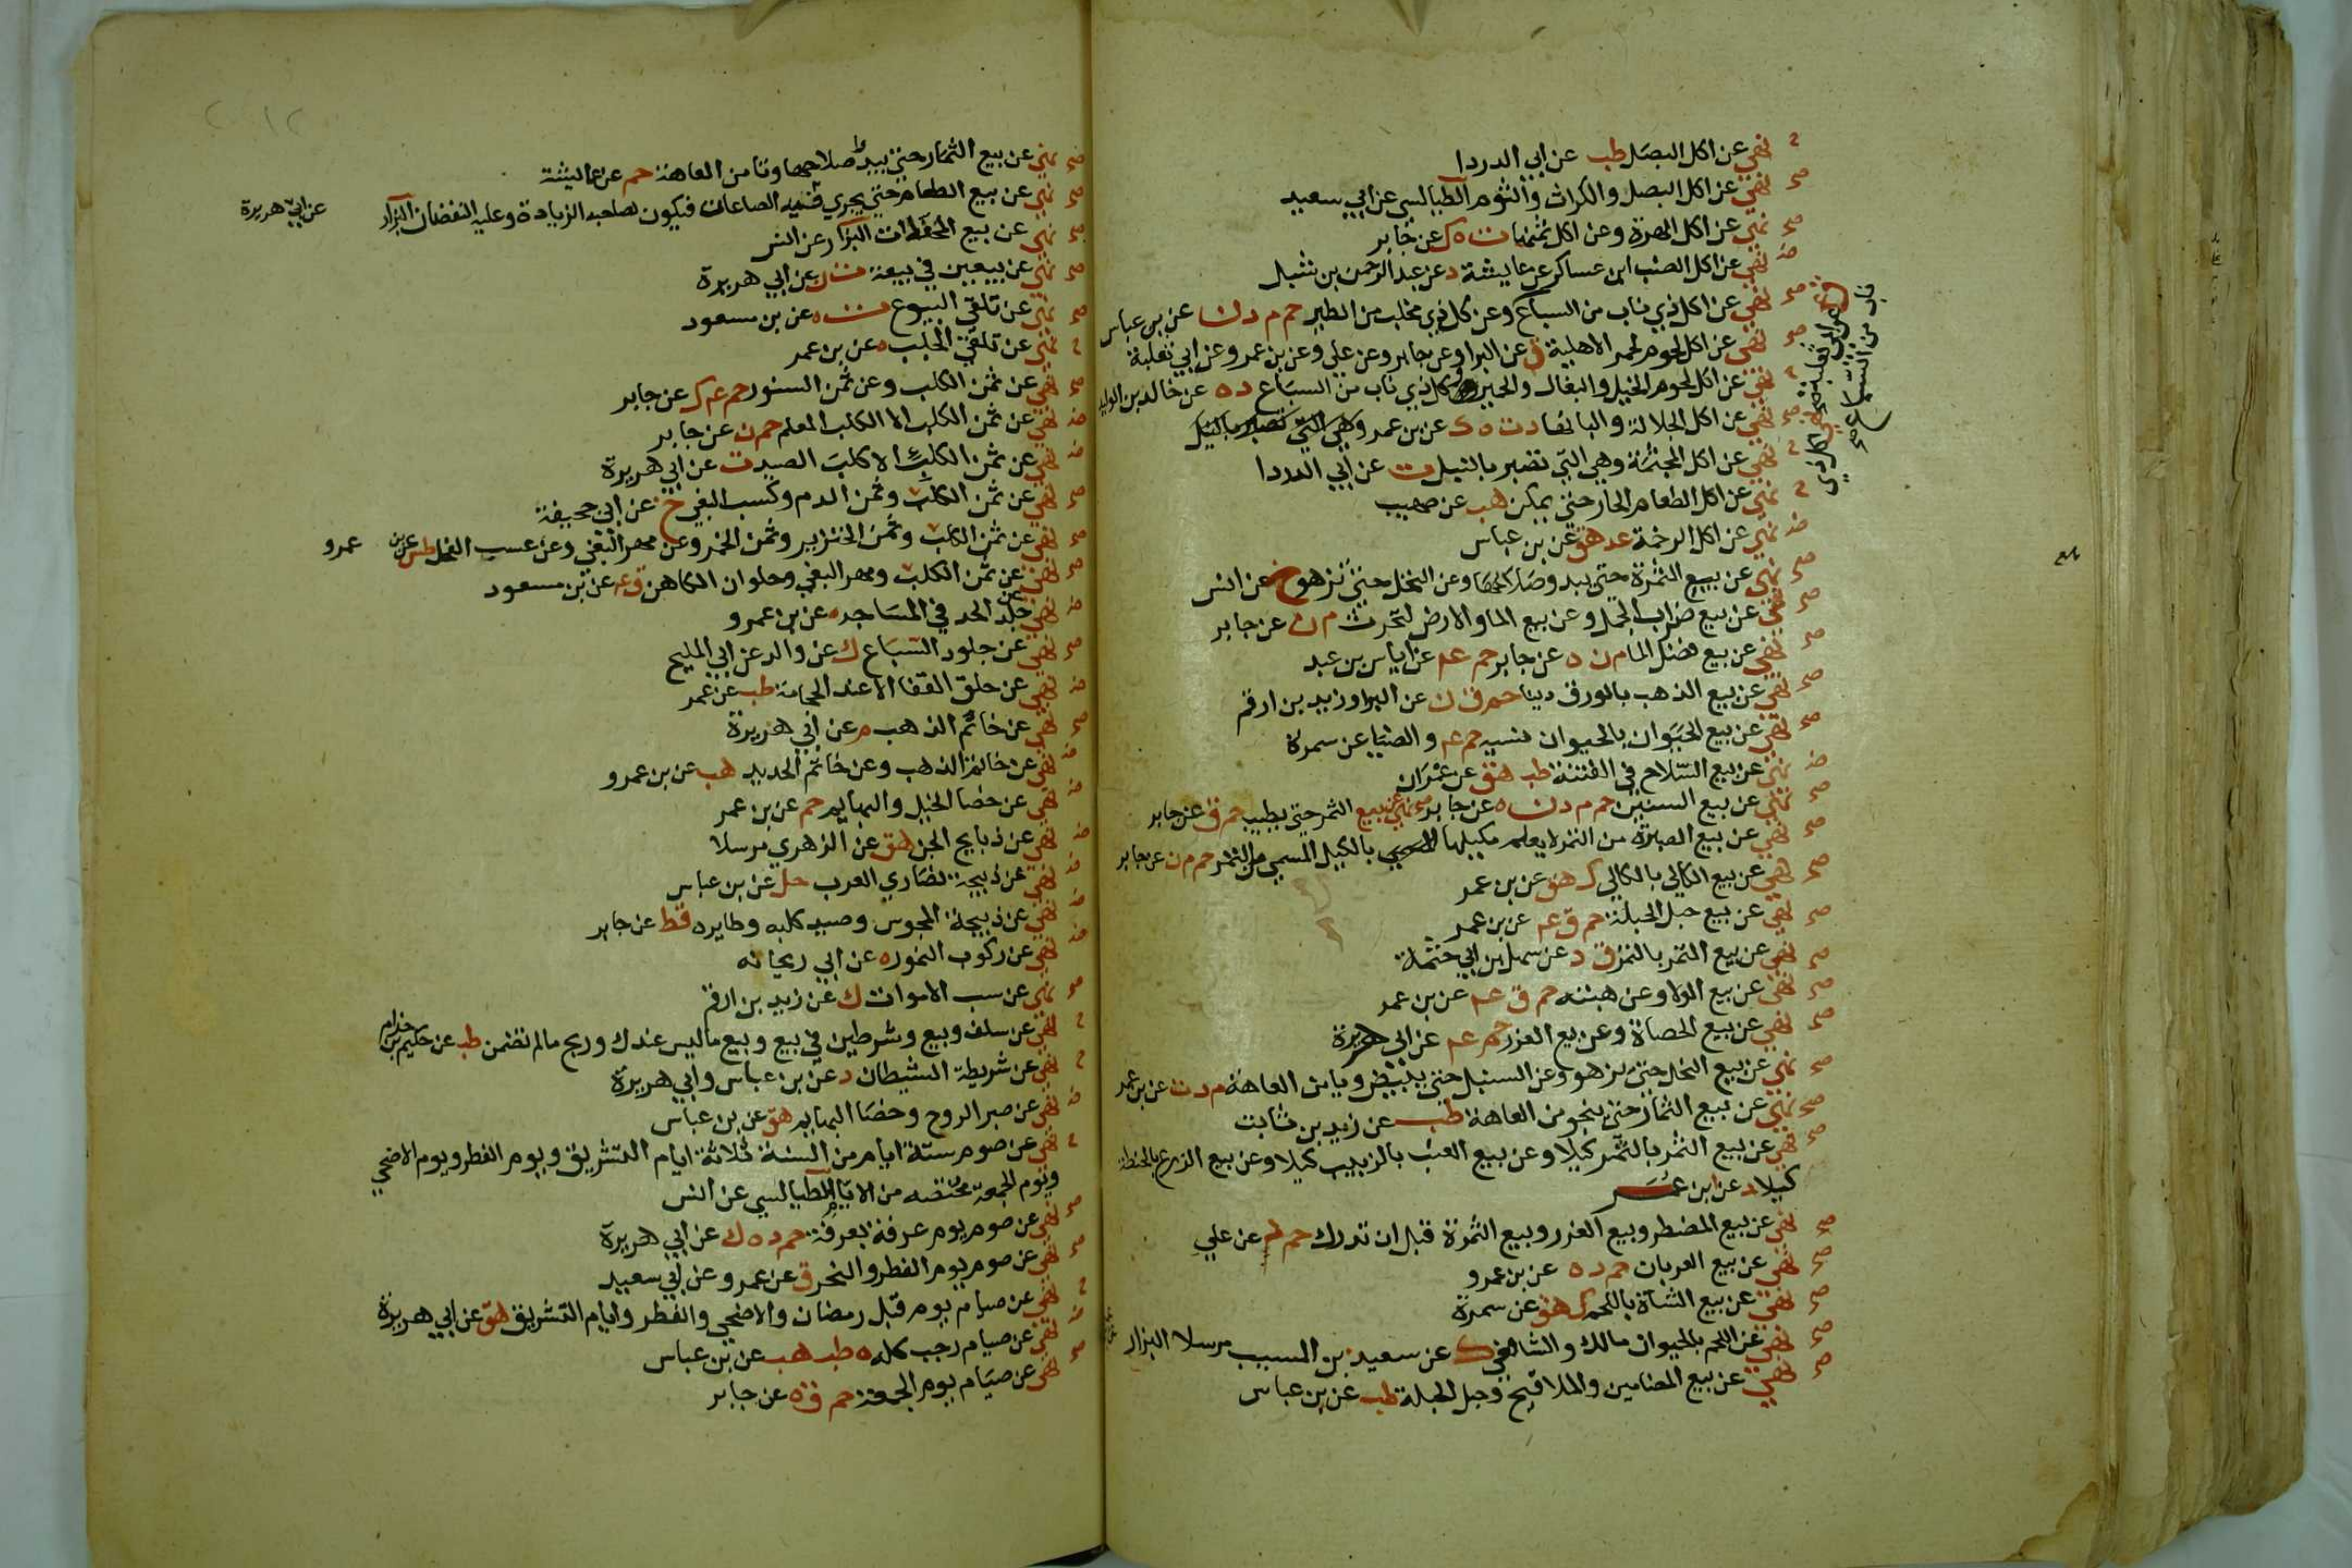 نهي عن اكل البصل طب عن ابي الدردا
نهي عن اكل البصل والكراث والثوم الطيالسي عن ابي سعيد
نهي عن اكل الهرة وعن اكل ثمنها ت ه ك عن جابر
نهي عن اكل الضب ابن عساكر عن عايشة د عن عبد الرحمن بن شبل
نهي عن اكل ذي ناب من السباع وعن كل ذي مخلب من الطير حم م د ن عن بن عباس
نهي عن اكل لحوم لحمر الاهلية ق عن البرا وعن جابر وعن علي وعن بن عمر وعن ابي ثعلبة
نهي عن اكل لحوم الخيل والبغال والحمير وكل ذي ناب من السباع د ه عن خالد بن الوليد
نهي عن اكل الجلالة والبانها د ت ه ك عن بن عمر وهي التي تصبر بالنبل
نهي عن اكل المجثمة وهي التي تصبر بالنبل ت عن ابي الدردا
نهي عن اكل الطعام الحار حتي يمكن هب عن صهيب
نهي عن اكل الرخمة عد هق عن بن عباس
نهي عن بيع الثمرة حتي يبدو صلاحها وعن النخل حتي تزهو خ عن انس
نهي عن بيع ضراب الجمل وعن بيع الما والارض لتحرث م ن عن جابر
نهي عن بيع فضل الما م ن ه عن جابر حم عم عن اياس بن عبد
نهي عن بيع الذهب بالورق دينا حم ق ن عن البرا وزيد بن ارقم
نهي عن بيع الحيوان بالحيوان نسيه حم عم والضيا عن سمرة
نهي عن بيع السلاح في الفتنة طب هق عن عمران
نهي عن بيع السنين حم م د ن ه عن جابر نهي عن بيع الثمر حتي يطيب حم ق عن جابر
نهي عن بيع الصبرة من التمر لا يعلم مكيلها بالكيل المسمي من التمر حم م ن عن جابر
نهي عن بيع الكالي بالكالي ك هق عن بن عمر
نهي عن بيع حبل الحبلة حم ق عم عن بن عمر
نهي عن بيع الثمر بالتمر ق د عن سهل بن ابي حثمة
نهي عن بيع الولا وعن هبته حم ق عم عن بن عمر
نهي عن بيع الحصاة وعن بيع الغرر حم م عم عن ابي هريرة
نهي عن بيع النخل حتي يزهو وعن السنبل حتي يبيض ويامن العاهة م د ت عن بن عمر
نهي عن بيع الثمار حتي ينجو من العاهة طب عن زيد بن ثابت
نهي عن بيع الثمر بالتمر كيلا وعن بيع العنب بالزبيب كيلا وعن بيع الزرع بالحنطة
كيلا د عن ابن عمر
نهي عن بيع المضطر وبيع الغرر وبيع الثمرة قبل ان تدرك حم د عن علي
نهي عن بيع العربان حم د ه عن بن عمرو
نهي عن بيع الشاة باللحم ك هق عن سمرة
نهي عن اللحم بالحيوان مالك والشافعي ك عن سعيد بن المسيب مرسلا البزار
نهي عن بيع المضامين والملاقيح وحبل الحبلة طب عن بن عباس
نهي عن بيع الثمار حتي يبدو صلاحها وتامن العاهة حم عن عاليشة
نهي عن بيع الطعام حتي يجري فيه الصاعان فيكون لصاحبه الزيادة وعليه النقصان البزار عن ابي هريرة
نهي عن بيع المحفلات البزار عن انس
نهي عن بيعين في بيعة ت ن عن ابي هريرة
نهي عن تلقي البيوع ت ه عن بن مسعود
نهي عن تلقي الجلب ه عن بن عمر
نهي عن ثمن الكلب وعن ثمن السنور حم عم ك عن جابر
نهي عن ثمن الكلب الا الكلب المعلم حم ن عن جابر
نهي عن ثمن الكلب الا كلب الصيد ت عن ابي هريرة
نهي عن ثمن الكلب وثمن الدم وكسب البغي خ عن ابي جحيفة
نهي عن ثمن الكلب وثمن الخنزير وثمن الخمر وعن مهر البغي وعن عسب الفحل طس عن بن عمرو
نهي عن ثمن الكلب ومهر البغي وحلوان الكاهن ق عم عن بن مسعود
نهي عن جلد الحد في المساجد ه عن بن عمرو
نهي عن جلود السباع ك عن والد عن ابي المليح
نهي عن حلق القفا الا عند الحجامة طب عن عمر
نهي عن خاتم الذهب م عن ابي هريرة
نهي عن خاتم الذهب وعن خاتم الحديد هب عن بن عمرو
نهي عن خصا الخيل والبهايم حم عن بن عمر
نهي عن ذبايح الجن هق عن الزهري مرسلا
نهي عن ذبيحة نصاري العرب حل عن بن عباس
نهي عن ذبيحة المجوس وصيد كلبه وطايره قط عن جابر
نهي عن ركوب النمور ه عن ابي ريحانه
نهي عن سب الاموات ك عن زيد بن ارقم
نهي عن سلف وبيع وشرطين في بيع وبيع ماليس عندك وربح مالم تضمن طب عن حكيم بن حزام
نهي عن شريطة الشيطان د عن بن عباس وابي هريرة
نهي عن صبر الروح وخصا البهايم هق عن بن عباس
نهي عن صوم ستة ايام من السنة ثلاثة ايام التشريق ويوم الفطر ويوم الاضحي
ويوم الجمعة مختصه من الايام الطيالسي عن انس
نهي عن صوم يوم عرفة بعرفة حم د ه ك عن ابي هريرة
نهي عن صوم يوم الفطر والنحر ق عن عمر وعن ابي سعيد
نهي عن صيام يوم قبل رمضان والاضحي والفطر وايام التشريق هق عن ابي هريرة
نهي عن صيام رجب كله ه طب هب عن بن عباس
نهي عن صيام يوم الجمعة حم ق ه عن جابر